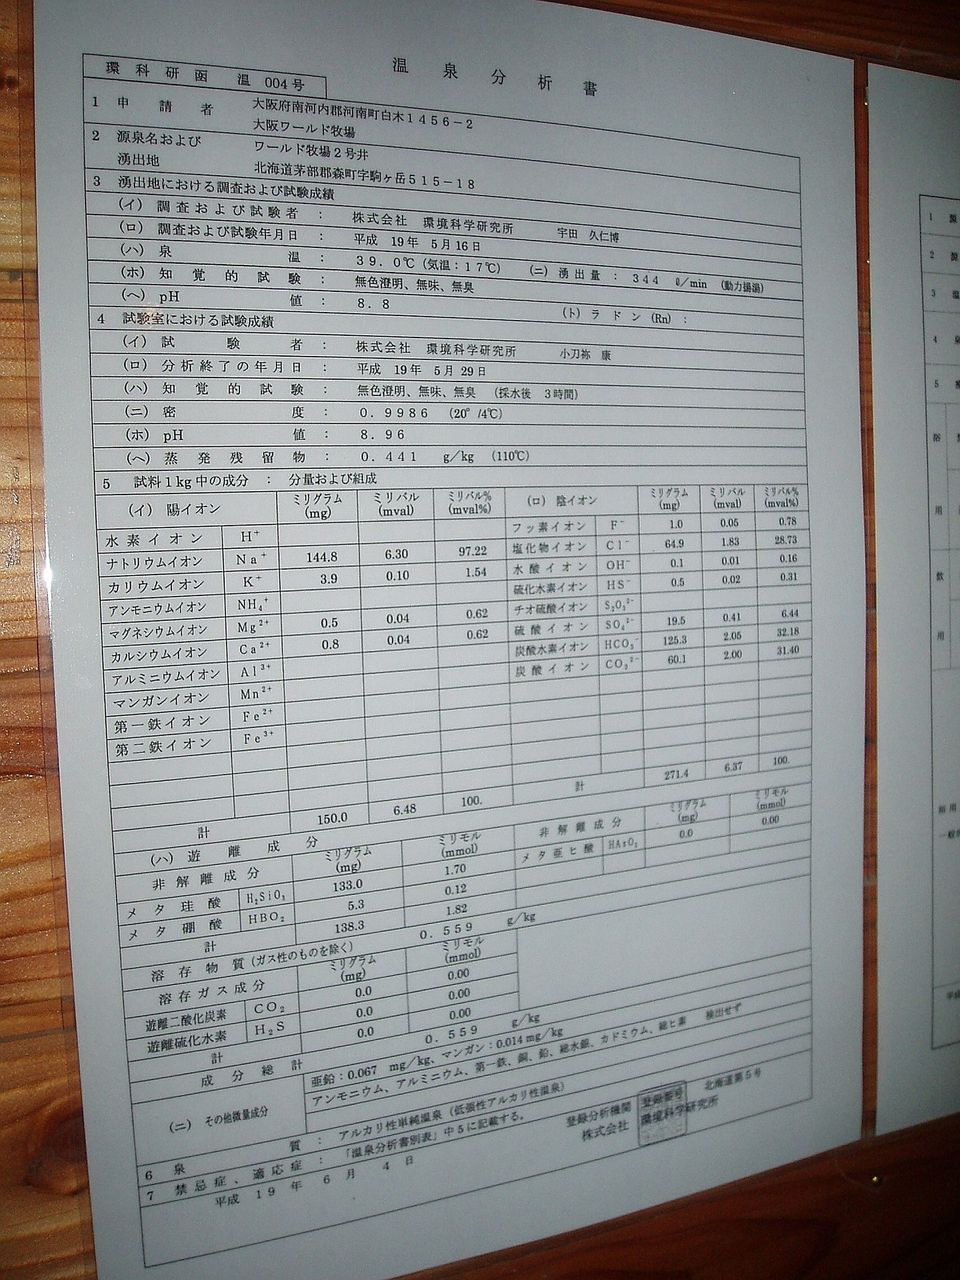 温泉分析書
環科研函 温 004号
1 申請者 大阪府南河内郡河南町白木1456-2
大阪ワールド牧場
2 源泉名および ワールド牧場2号井
湧出地 北海道茅部郡森町字駒ヶ岳515-18
3 湧出地における調査および試験成績
(イ) 調査および試験者 : 株式会社 環境科学研究所 宇田 久仁博
(ロ) 調査および試験年月日 : 平成 19年 5月16日
(ハ) 泉温 : 39.0℃(気温:17℃) (ニ) 湧出量 : 344 ℓ/min (動力揚湯)
(ホ) 知覚的試験 : 無色澄明、無味、無臭
(ヘ) pH値 : 8.8 (ト) ラドン (Rn) :
4 試験室における試験成績
(イ) 試験者 : 株式会社 環境科学研究所 小刀祢 康
(ロ) 分析終了の年月日 : 平成 19年 5月29日
(ハ) 知覚的試験 : 無色澄明、無味、無臭 (採水後 3時間)
(ニ) 密度 : 0.9986 (20°/4℃)
(ホ) pH値 : 8.96
(ヘ) 蒸発残留物 : 0.441 g/kg (110℃)
5 試料1kg中の成分 : 分量および組成
(イ) 陽イオン ミリグラム(mg) ミリバル(mval) ミリバル%(mval%) (ロ) 陰イオン ミリグラム(mg) ミリバル(mval) ミリバル%(mval%)
水素イオン H⁺ フッ素イオン F⁻ 1.0 0.05 0.78
ナトリウムイオン Na⁺ 144.8 6.30 97.22 塩化物イオン Cl⁻ 64.9 1.83 28.73
カリウムイオン K⁺ 3.9 0.10 1.54 水酸イオン OH⁻ 0.1 0.01 0.16
アンモニウムイオン NH₄⁺ 硫化水素イオン HS⁻ 0.5 0.02 0.31
マグネシウムイオン Mg²⁺ 0.5 0.04 0.62 チオ硫酸イオン S₂O₃²⁻
カルシウムイオン Ca²⁺ 0.8 0.04 0.62 硫酸イオン SO₄²⁻ 19.5 0.41 6.44
アルミニウムイオン Al³⁺ 炭酸水素イオン HCO₃⁻ 125.3 2.05 32.18
マンガンイオン Mn²⁺ 炭酸イオン CO₃²⁻ 60.1 2.00 31.40
第一鉄イオン Fe²⁺
第二鉄イオン Fe³⁺
計 150.0 6.48 100. 計 271.4 6.37 100.
(ハ) 遊離成分
非解離成分 ミリグラム(mg) ミリモル(mmol) 非解離成分 ミリグラム(mg) ミリモル(mmol)
メタ珪酸 H₂SiO₃ 133.0 1.70 メタ亜ヒ酸 HAsO₂ 0.0 0.00
メタ硼酸 HBO₂ 5.3 0.12
計 138.3 1.82
溶存物質(ガス性のものを除く) 0.559 g/kg
溶存ガス成分 ミリグラム(mg) ミリモル(mmol)
遊離二酸化炭素 CO₂ 0.0 0.00
遊離硫化水素 H₂S 0.0 0.00
計 0.0 0.00
成分総計 0.559 g/kg
(ニ) その他微量成分 亜鉛:0.067 mg/kg、マンガン:0.014 mg/kg
アンモニウム、アルミニウム、第一鉄、銅、鉛、総水銀、カドミウム、総ヒ素 検出せず
6 泉質 : アルカリ性単純温泉 (低張性アルカリ性温泉)
7 禁忌症、適応症 : 「温泉分析書別表」中5に記載する。
平成 19年 6月 4日
登録分析機関 登録番号 北海道第5号
株式会社 環境科学研究所
1 源
2 源
3 温
4 泉
5
浴
用
飲
用